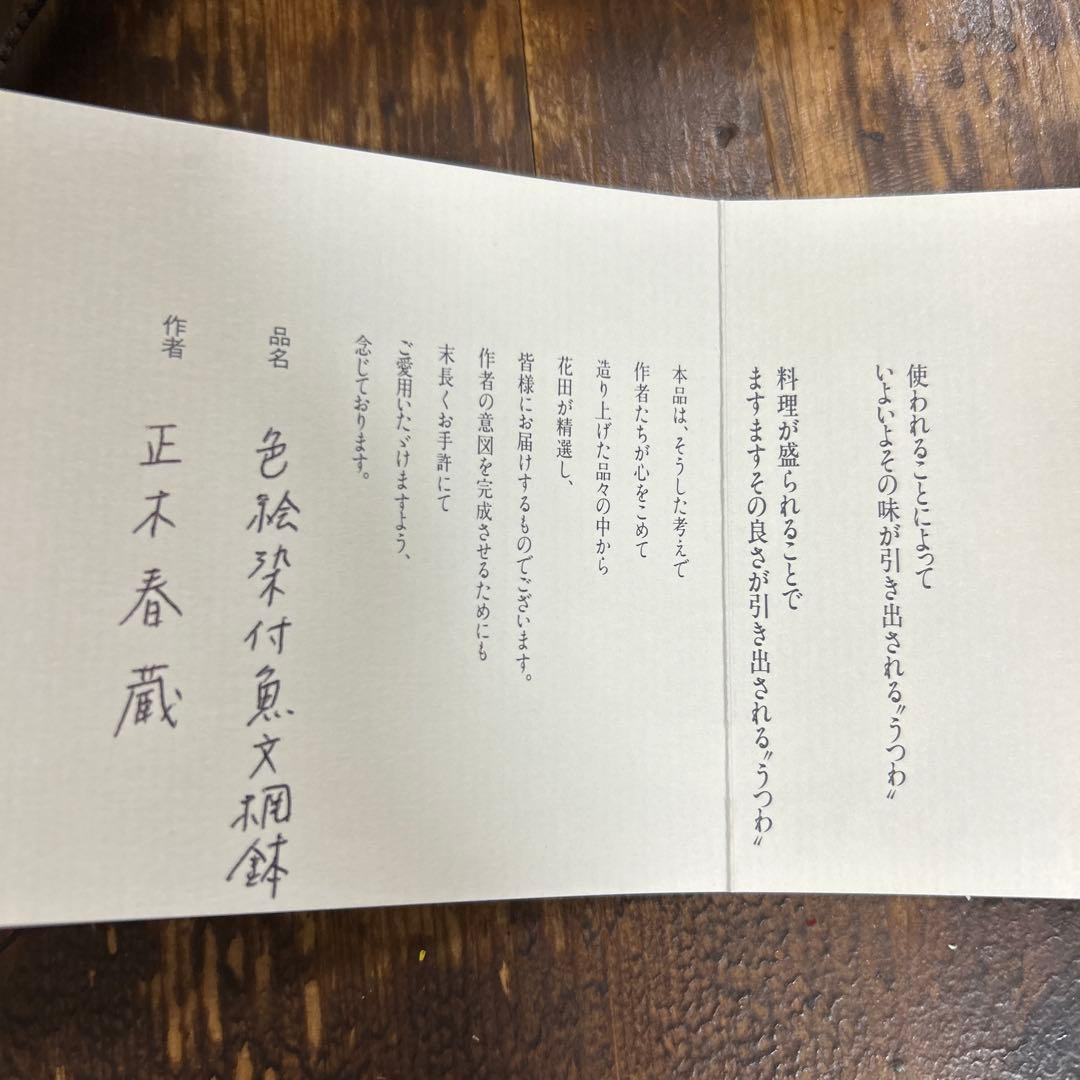 使われることによって
いよいよその味が引き出される〝うつわ〟
料理が盛られることで
ますますその良さが引き出される〝うつわ〟
本品は、そうした考えで
作者たちが心をこめて
造り上げた品々の中から
花田が精選し、
皆様にお届けするものでございます。
作者の意図を完成させるためにも
末長くお手許にて
ご愛用いたゞけますよう、
念じております。
品名 色絵染付魚文棡鉢
作者 正木春蔵